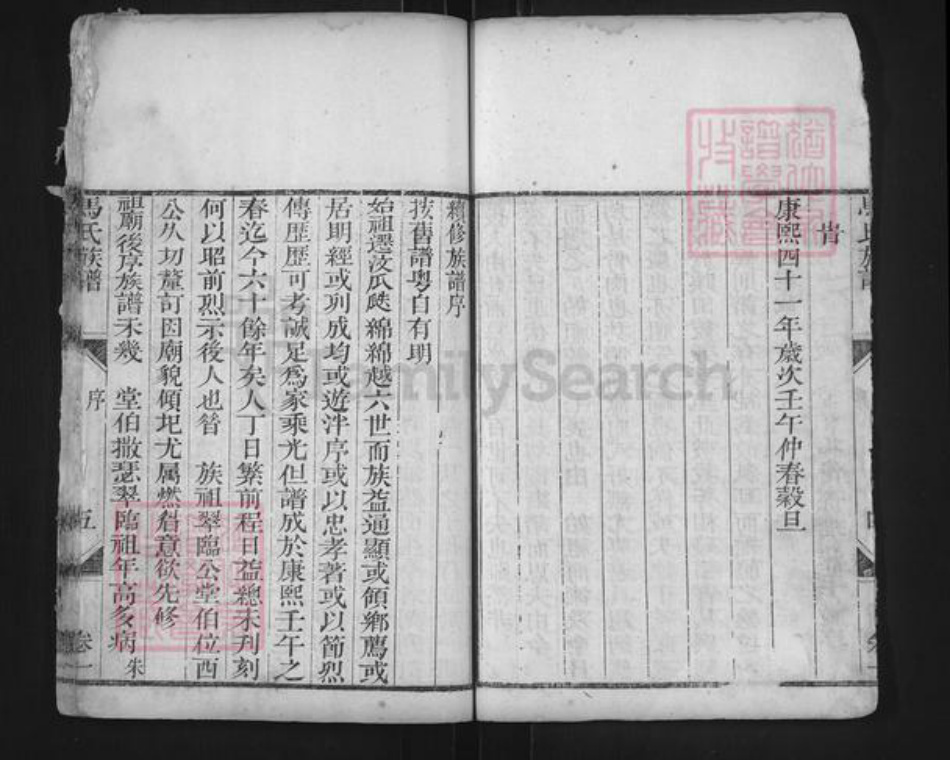 時
康熙四十一年歲次壬午仲春穀旦
續修族譜序
按舊譜粵自有明
始祖遷汶瓜瓞綿綿越六世而族益通顯或領鄉薦或
居明經或列成均或遊泮序或以忠孝著或以節烈
傳歷歷可考誠足爲家乘光但譜成於康熙壬午之
春迄今六十餘年矣人丁日繁前程日益總未刊刻
何以昭前烈示後人也 族祖翠臨公堂伯位西
公久切釐訂因廟貌傾圯尤屬燃眉意欲先修
祖廟後序族譜未幾 堂伯撒瑟翠臨祖年高多病
馬氏族譜
序
五
卷一
FamilySearch